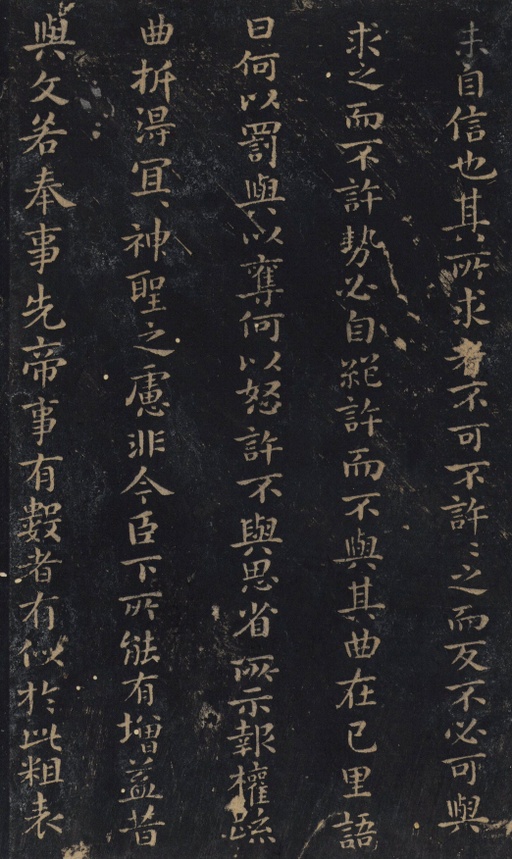 未自信也其所求者不可不許〻之而反不必可與
求之而不許勢必自絕許而不與其曲在己里語
曰何以罰與以奪何以怒許不與思省所示報權疏
曲折得冝〻神聖之慮非今臣下所能有增益昔
與文若奉事先帝事有數者有似於此粗表